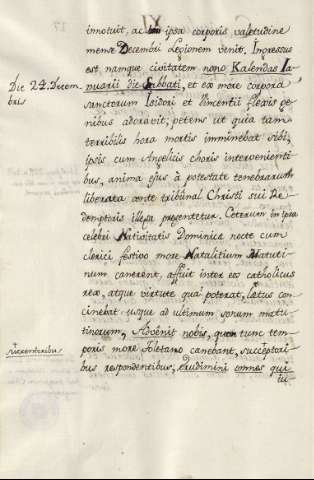 innotuit, ac in ipsa corporis valetudine
mense Decembrii Legionem venit. Ingressus
est, namque civitatem nono Kalendas Ia-
Die 24. Decem-
bris
nuarii die Sabbati, et ex more corpora
sanctorum Isidori et Vincentii flexis ge-
nibus adoravit; petens ut quia tam
terribilis hora mortis imminebat sibi,
ipsis cum Angelicis choris intervenienti-
bus, anima ejus à potestate tenebrarum
liberata ante tribunal Christi sui Re-
demptoris illæsa presentetur. Ceterum in ipsa
celebri Nativitatis Dominicæ nocte cum
clerici festivo more Natalitium Matuti-
num canerent, affuit inter eos catholicus
rex, atque virtute qua poterat, lætus con-
cinebat usque ad ultimum sonum matu-
tinorum, Advenit nobis, quem tunc tem-
poris more Toletano canebant, succeptori-
bus respondentibus; erudimini omnes qui
iu-